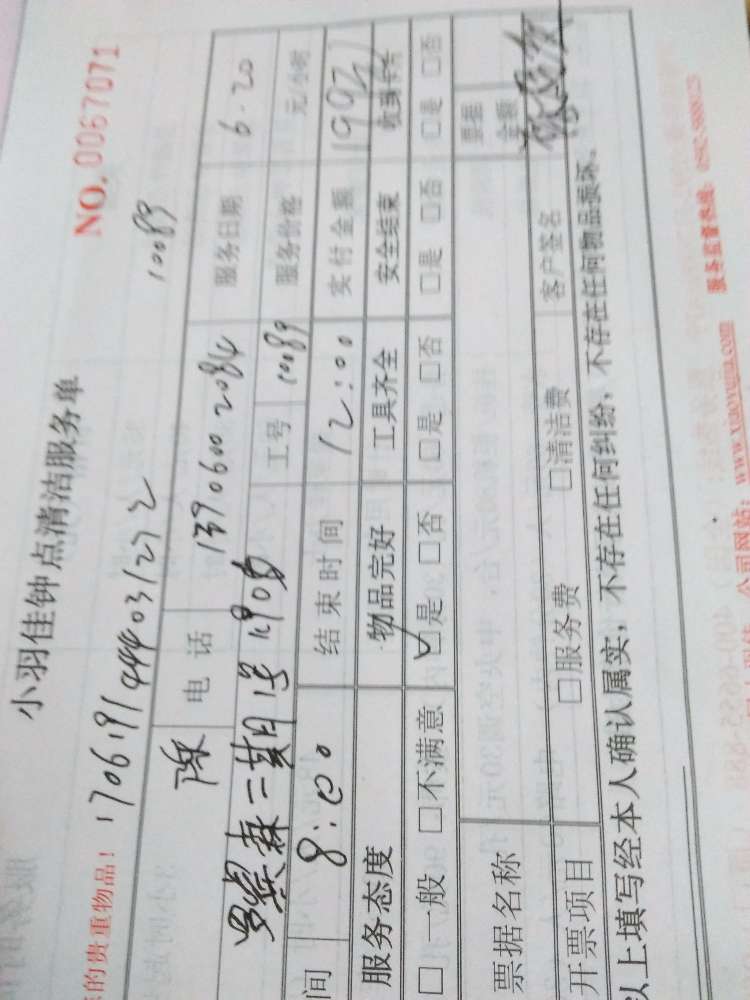 小羽佳钟点清洁服务单
NO.0067071
的贵重物品！170619144403/272
10089
陈 电话 13906002084 服务日期 6.20
二期 工号 10089 服务价格 元/小时
间 8:00 结束时间 12:00 实付金额 199
服务态度 物品完好 工具齐全 安全结束 收到卡片
□一般 □不满意 ☑是 □否 □是 □否 □是 □否 □是 □否
票据名称 票据金额
开票项目 □服务费 □清洁费 客户签名
以上填写经本人确认属实，不存在任何纠纷，不存在任何物品损坏。
公司网站：www.xiaoyujia.com 服务监督热线：0592-